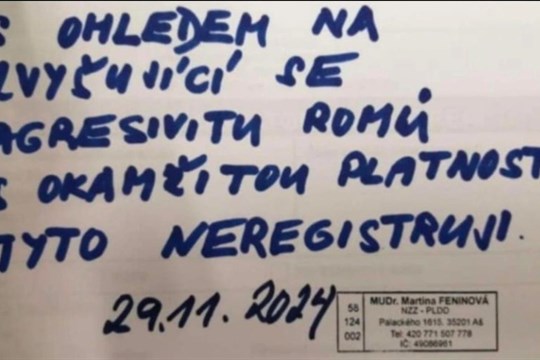 S OHLEDEM NA
ZVYŠUJÍCÍ SE
AGRESIVITU ROMŮ
S OKAMŽITOU PLATNOST
TYTO NEREGISTRUJI.
29.11.2024
58
124
002
MUDr. Martina FENINOVÁ
NZZ - PLDD
Palackého 1610, 35201 Aš
Tel: 420 771 507 778
IČ: 49086961